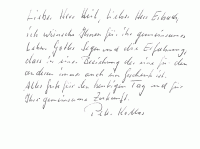 Lieber Herr Beil, lieber Herr Erhardt,
ich wünsche Ihnen für ihr gemeinsames
Leben Gottes Segen und die Erfahrung,
dass in einer Beziehung der eine für den
anderen immer auch ein Geschenk ist.
Alles Gute für den heutigen Tag und für
Ihre gemeinsame Zukunft.